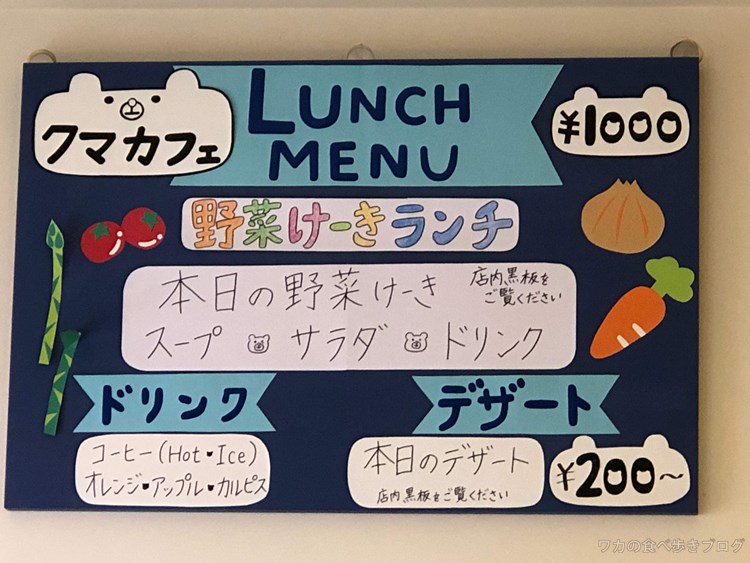 クマカフェ
LUNCH
MENU
¥1000
野菜けーきランチ
本日の野菜けーき
店内黒板を
ご覧ください
スープ サラダ ドリンク
ドリンク
コーヒー(Hot・Ice)
オレンジ・アップル・カルピス
デザート
本日のデザート
店内黒板をご覧ください
¥200〜
ワカの食べ歩きブログ